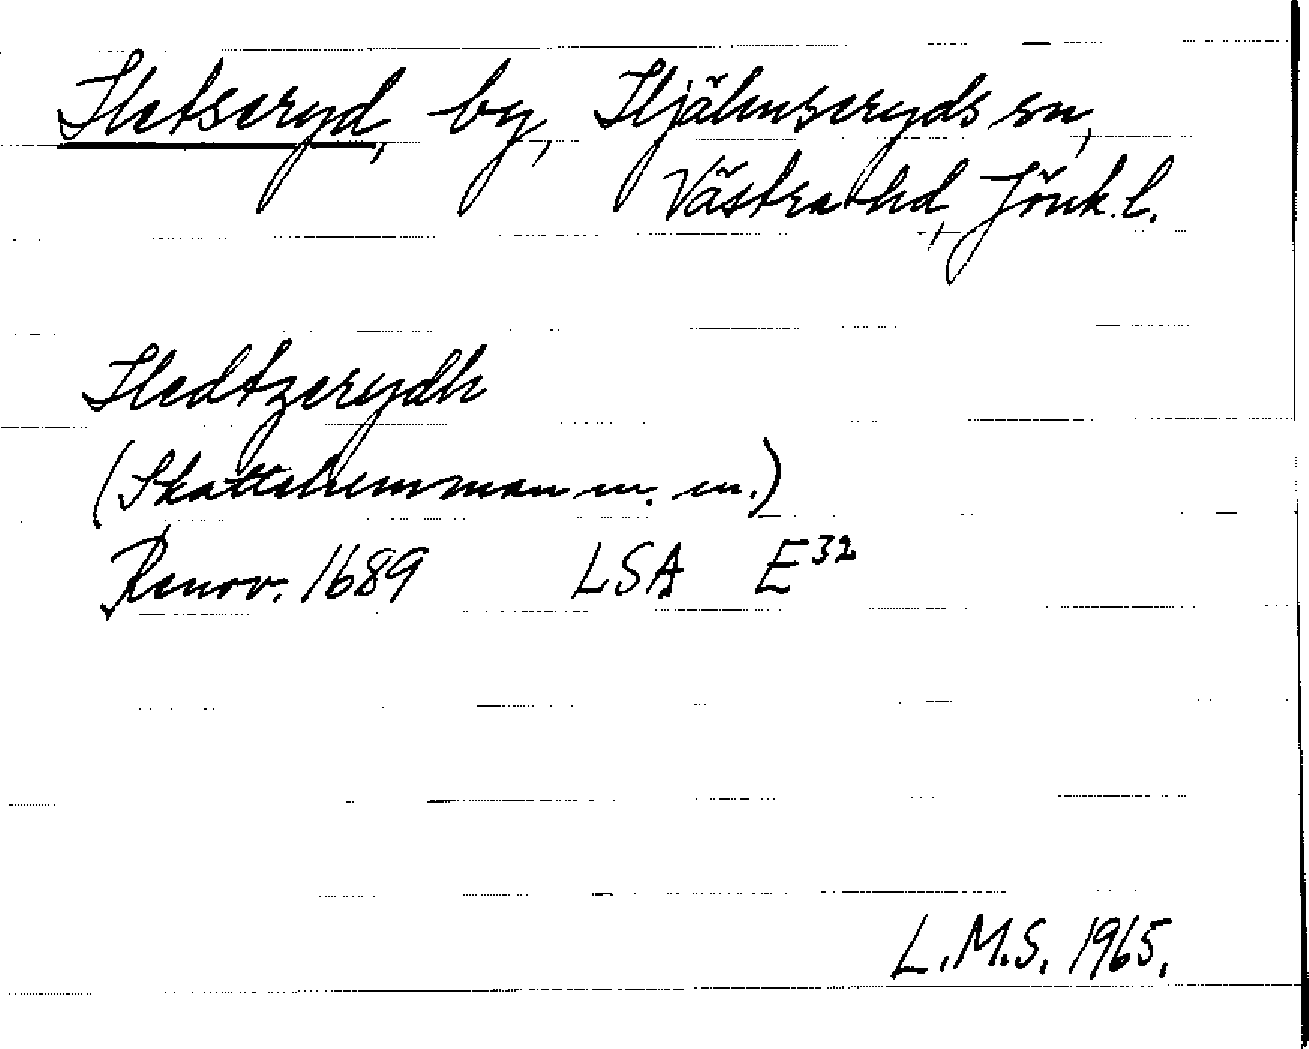 Hetseryd, by, Hjälmseryds sn,
Västra hd, Jönk. l.
Hedtzerydh
(Skattehemman m. m.)
Renov. 1689 LSA E³²
L.M.S. 1965.